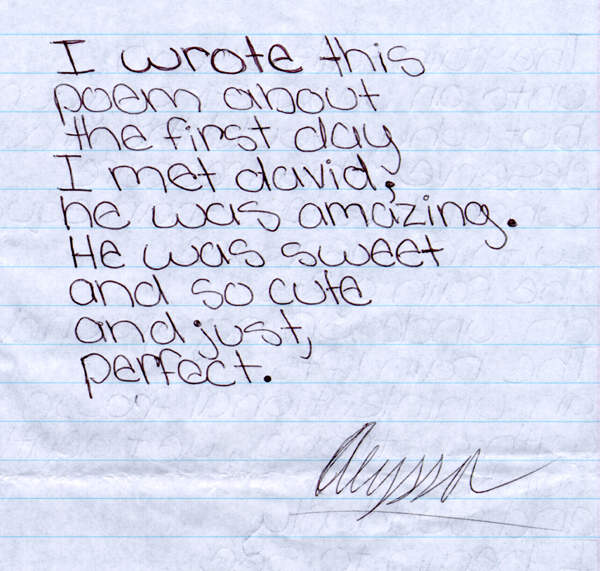 I wrote this
poem about
the first day
I met david,
he was amazing.
He was sweet
and so cute
and just,
perfect.
Alyssa